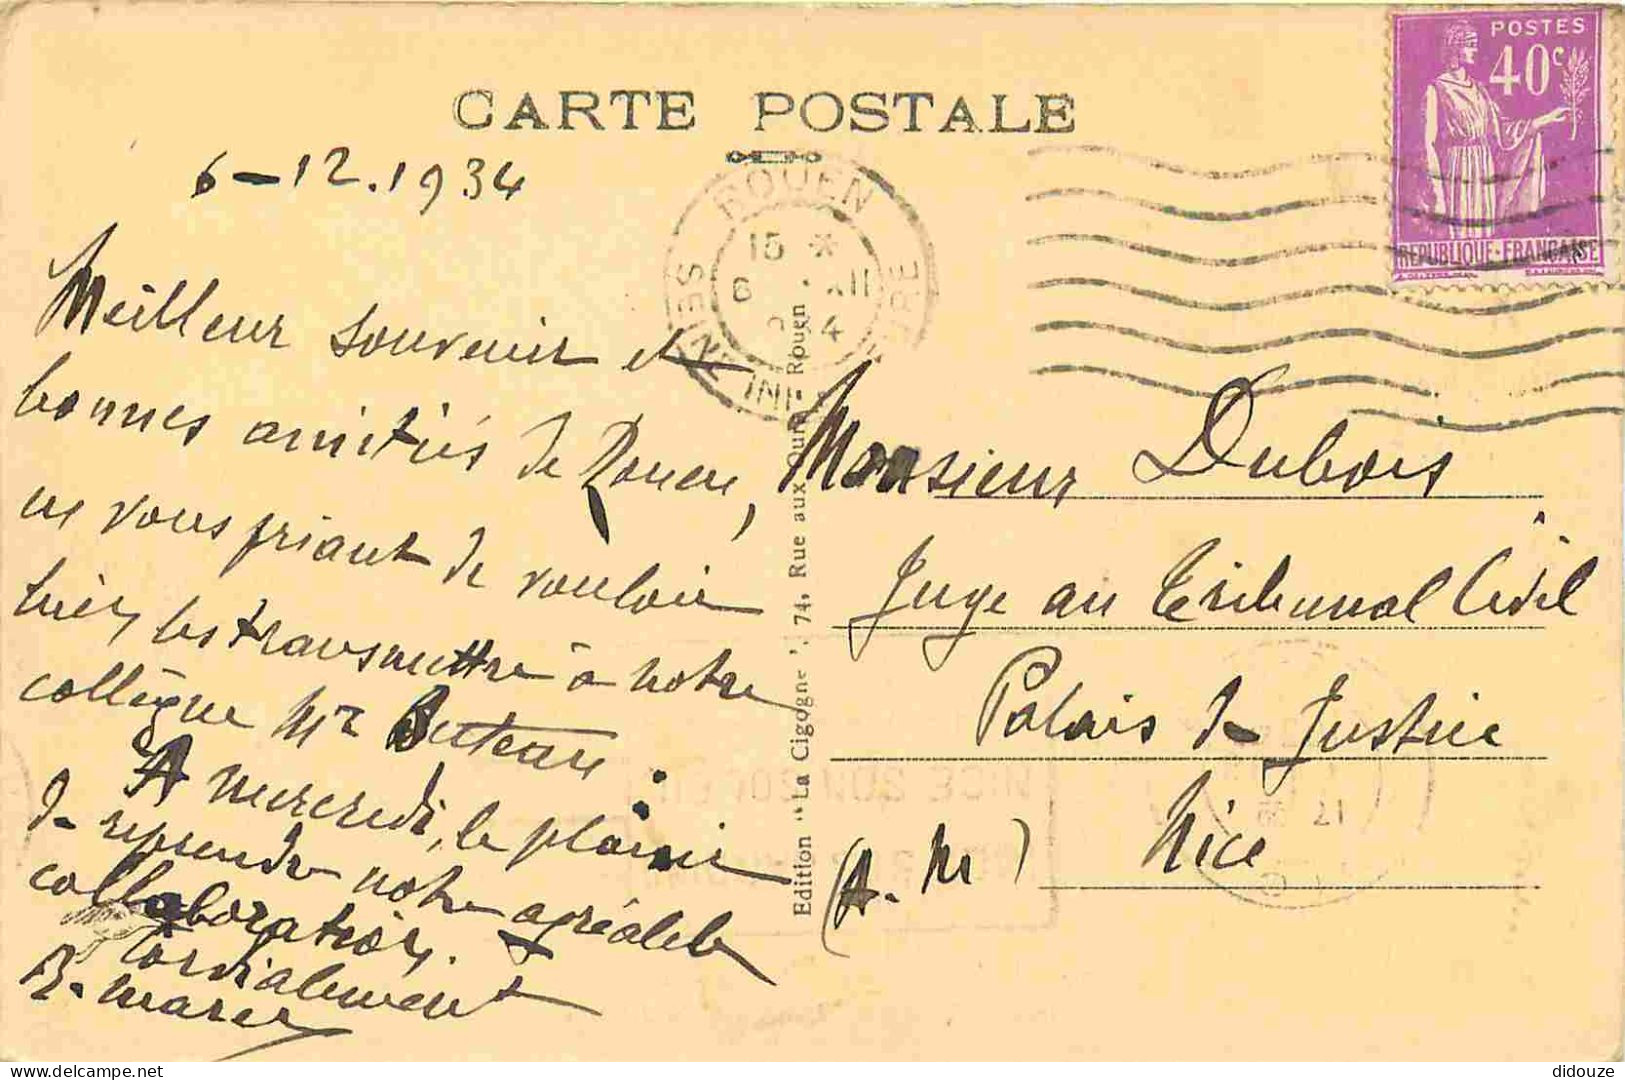 CARTE POSTALE
POSTES
40c
REPUBLIQUE-FRANCAISE
6-12.1934
ROUEN
15 *
6 XII
SEINE INF
Meilleur souvenir et
bonnes amitiés de Rouen,
en vous priant de vouloir
bien les transmettre à notre
collègue Mr
A mercredi, le plaisir
de reprendre notre agréable
collaboration.
Cordialement
Edition "La Cigogne", 74, Rue aux Ours, Rouen
Monsieur Dubois
Juge au Tribunal Civil
Palais de Justice
Nice
(A. M)
didouze